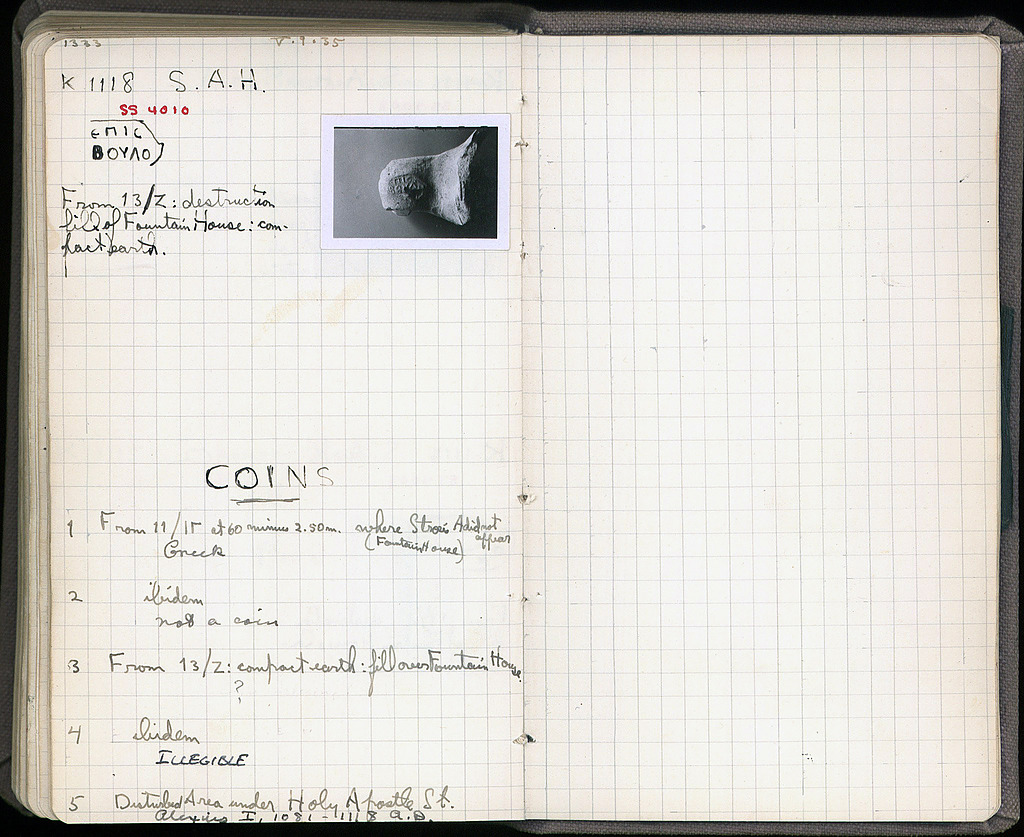 1333 V.9.35
K 1118 S.A.H.
SS 4010
ЄΠIC
BOYΛO
From 13/Z: destruction
fill of Fountain House: com-
pact earth.
COINS
1 From 11/ΙΓ at 60 minus 2.50m. where Strosis A did not
appear
(Fountain House)
Greek
2 ibidem
not a coin
3 From 13/Z: compact earth: fill over Fountain House.
?
4 ibidem
ILLEGIBLE
5 Disturbed Area under Holy Apostle St.
Alexius I, 1081-1118 A.D.